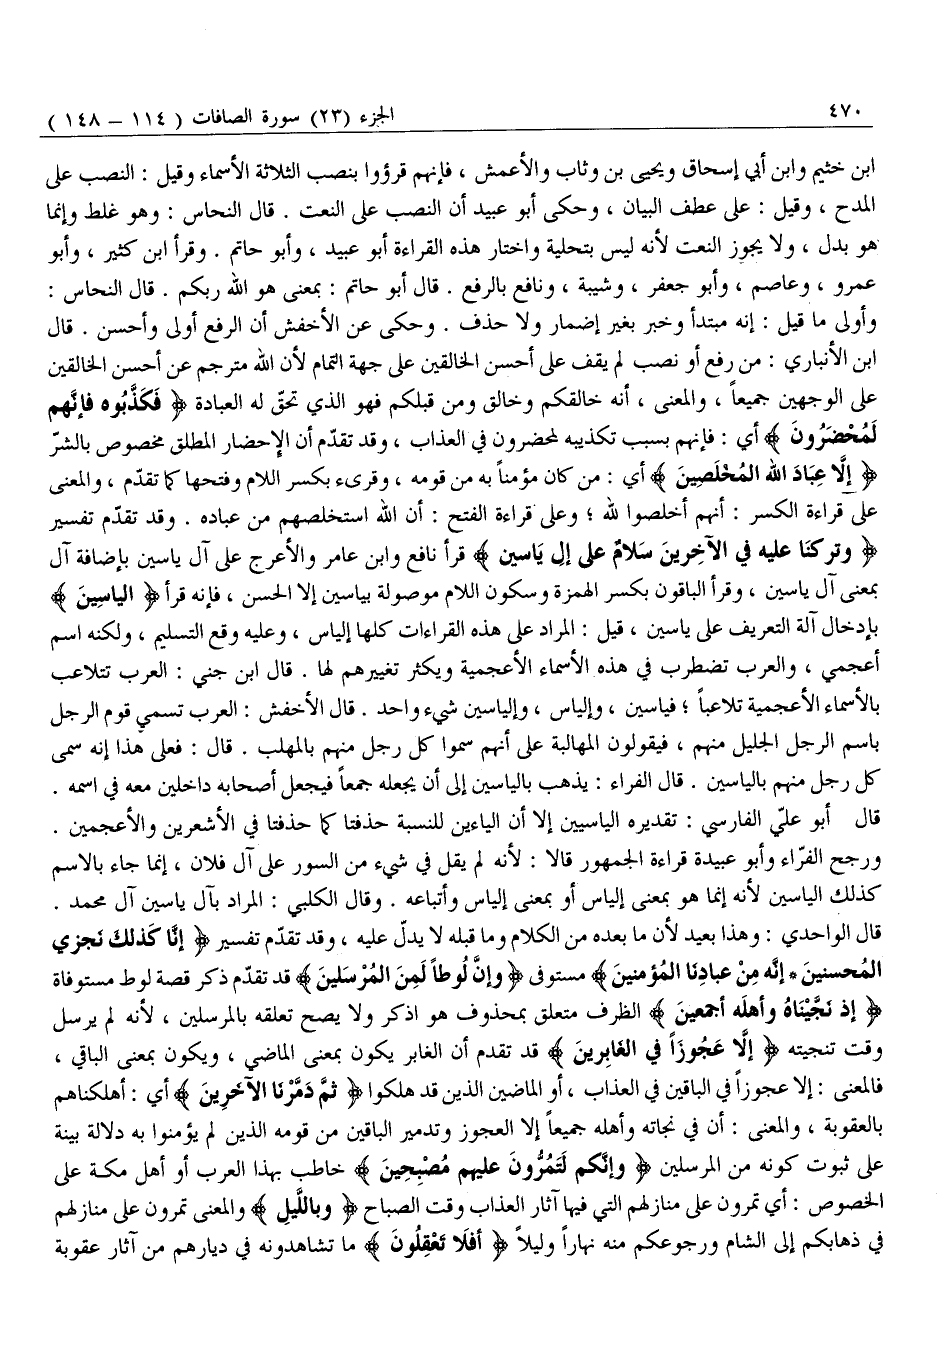 ٤٧٠
الجزء (٢٣) سورة الصافات ( ١١٤ – ١٤٨ )
ابن خثيم وابن أبي إسحاق ويحيى بن وثاب والأعمش ، فإنهم قرؤوا بنصب الثلاثة الأسماء وقيل : النصب على
المدح ، وقيل : على عطف البيان ، وحكى أبو عبيد أن النصب على النعت . قال النحاس : وهو غلط وإنما
هو بدل ، ولا يجوز النعت لأنه ليس بتحلية واختار هذه القراءة أبو عبيد ، وأبو حاتم . وقرأ ابن كثير ، وأبو
عمرو ، وعاصم ، وأبو جعفر ، وشيبة ، ونافع بالرفع . قال أبو حاتم : بمعنى هو الله ربكم . قال النحاس :
وأولى ما قيل : إنه مبتدأ وخبر بغير إضمار ولا حذف . وحكى عن الأخفش أن الرفع أولى وأحسن . قال
ابن الأنباري : من رفع أو نصب لم يقف على أحسن الخالقين على جهة التمام لأن الله مترجم عن أحسن الخالقين
على الوجهين جميعاً ، والمعنى ، أنه خالقكم وخالق ومن قبلكم فهو الذي تحقّ له العبادة ﴿ فَكَذَّبُوه فإنَّهم
لَمُحْضَرُونَ ﴾ أي : فإنهم بسبب تكذيبه لمحضرون في العذاب ، وقد تقدّم أن الإحضار المطلق مخصوص بالشرّ
﴿ إلَّا عِبَادَ الله المُخْلَصِينَ ﴾ أي : من كان مؤمناً به من قومه ، وقرىء بكسر اللام وفتحها كما تقدّم ، والمعنى
على قراءة الكسر : أنهم أخلصوا لله ؛ وعلى قراءة الفتح : أن الله استخلصهم من عباده . وقد تقدّم تفسير
﴿ وتركنَا عليه في الآخِرينَ سَلامٌ على إل يَاسين ﴾ قرأ نافع وابن عامر والأعرج على آل ياسين بإضافة آل
بمعنى آل ياسين ، وقرأ الباقون بكسر الهمزة وسكون اللام موصولة بياسين إلا الحسن ، فإنه قرأ ﴿ الياسِينَ ﴾
بإدخال آلة التعريف على ياسين ، قيل : المراد على هذه القراءات كلها إلياس ، وعليه وقع التسليم ، ولكنه اسم
أعجمي ، والعرب تضطرب في هذه الأسماء الأعجمية ويكثر تغييرهم لها . قال ابن جني : العرب تتلاعب
بالأسماء الأعجمية تلاعباً ؛ فياسين ، وإلياس ، وإلياسين شيء واحد . قال الأخفش : العرب تسمي قوم الرجل
باسم الرجل الجليل منهم ، فيقولون المهالبة على أنهم سموا كل رجل منهم بالمهلب . قال : فعلى هذا إنه سمى
كل رجل منهم بالياسين . قال الفراء : يذهب بالياسين إلى أن يجعله جمعاً فيجعل أصحابه داخلين معه في اسمه .
قال أبو عليّ الفارسي : تقديره الياسيين إلا أن الياءين للنسبة حذفتا كما حذفتا في الأشعرين والأعجمين .
ورجح الفرّاء وأبو عبيدة قراءة الجمهور قالا : لأنه لم يقل في شيء من السور على آل فلان ، إنما جاء بالاسم
كذلك الياسين لأنه إنما هو بمعنى إلياس أو بمعنى إلياس وأتباعه . وقال الكلبي : المراد بآل ياسين آل محمد .
قال الواحدي : وهذا بعيد لأن ما بعده من الكلام وما قبله لا يدلّ عليه ، وقد تقدّم تفسير ﴿ إنَّا كَذلكَ نَجزي
المُحسنينَ * إنَّه مِنْ عبادِنَا المُؤمنينَ ﴾ مستوفى ﴿ وإنَّ لُوطَاً لَمِنَ المُرْسَلينَ ﴾ قد تقدّم ذكر قصة لوط مستوفاة
﴿ إذ نَجَّيْنَاهُ وأهلَه أجمعينَ ﴾ الظرف متعلق بمحذوف هو اذكر ولا يصح تعلقه بالمرسلين ، لأنه لم يرسل
وقت تنجيته ﴿ إلَّا عَجُوزَاً في الغَابِرينَ ﴾ قد تقدم أن الغابر يكون بمعنى الماضي ، ويكون بمعنى الباقي ،
فالمعنى : إلا عجوزاً في الباقين في العذاب ، أو الماضين الذين قد هلكوا ﴿ ثمَّ دَمَّرْنَا الآخَرِينَ ﴾ أي : أهلكناهم
بالعقوبة ، والمعنى : أن في نجاته وأهله جميعاً إلا العجوز وتدمير الباقين من قومه الذين لم يؤمنوا به دلالة بينة
على ثبوت كونه من المرسلين ﴿ وإنَّكم لَتَمُرُّونَ عليهم مُصْبِحِينَ ﴾ خاطب بهذا العرب أو أهل مكة على
الخصوص : أي تمرون على منازلهم التي فيها آثار العذاب وقت الصباح ﴿ وباللَّيلِ ﴾ والمعنى تمرون على منازلهم
في ذهابكم إلى الشام ورجوعكم منه نهاراً وليلاً ﴿ أفَلَا تَعْقِلُونَ ﴾ ما تشاهدونه في ديارهم من آثار عقوبة